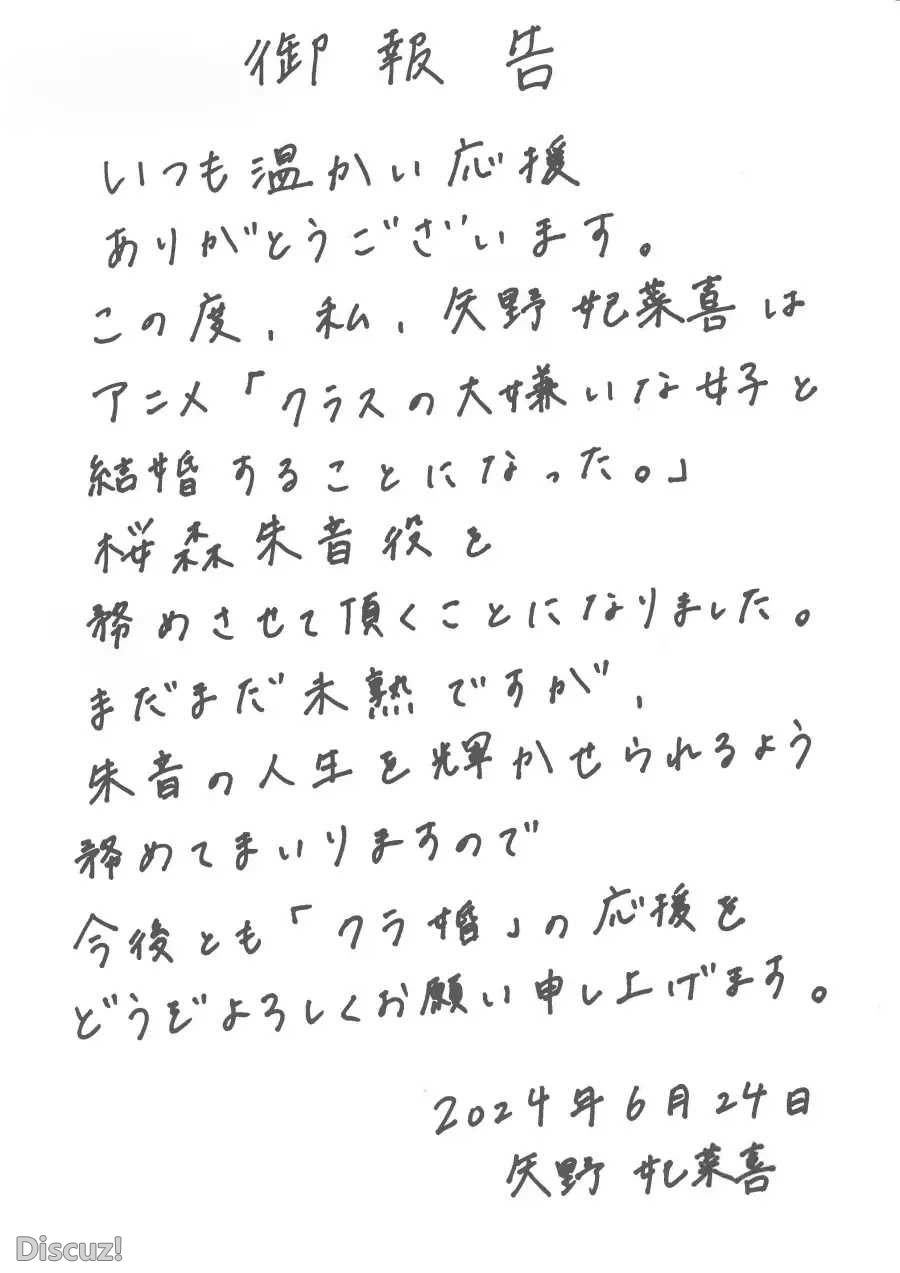 御報告
いつも温かい応援
ありがとうございます。
この度、私、矢野妃菜喜は
アニメ「クラスの大嫌いな女子と
結婚することになった。」
桜森朱音役を
務めさせて頂くことになりました。
まだまだ未熟ですが、
朱音の人生を輝かせられるよう
務めてまいりますので
今後とも「クラ婚」の応援を
どうぞよろしくお願い申し上げます。
2024年6月24日
矢野妃菜喜
Discuz!